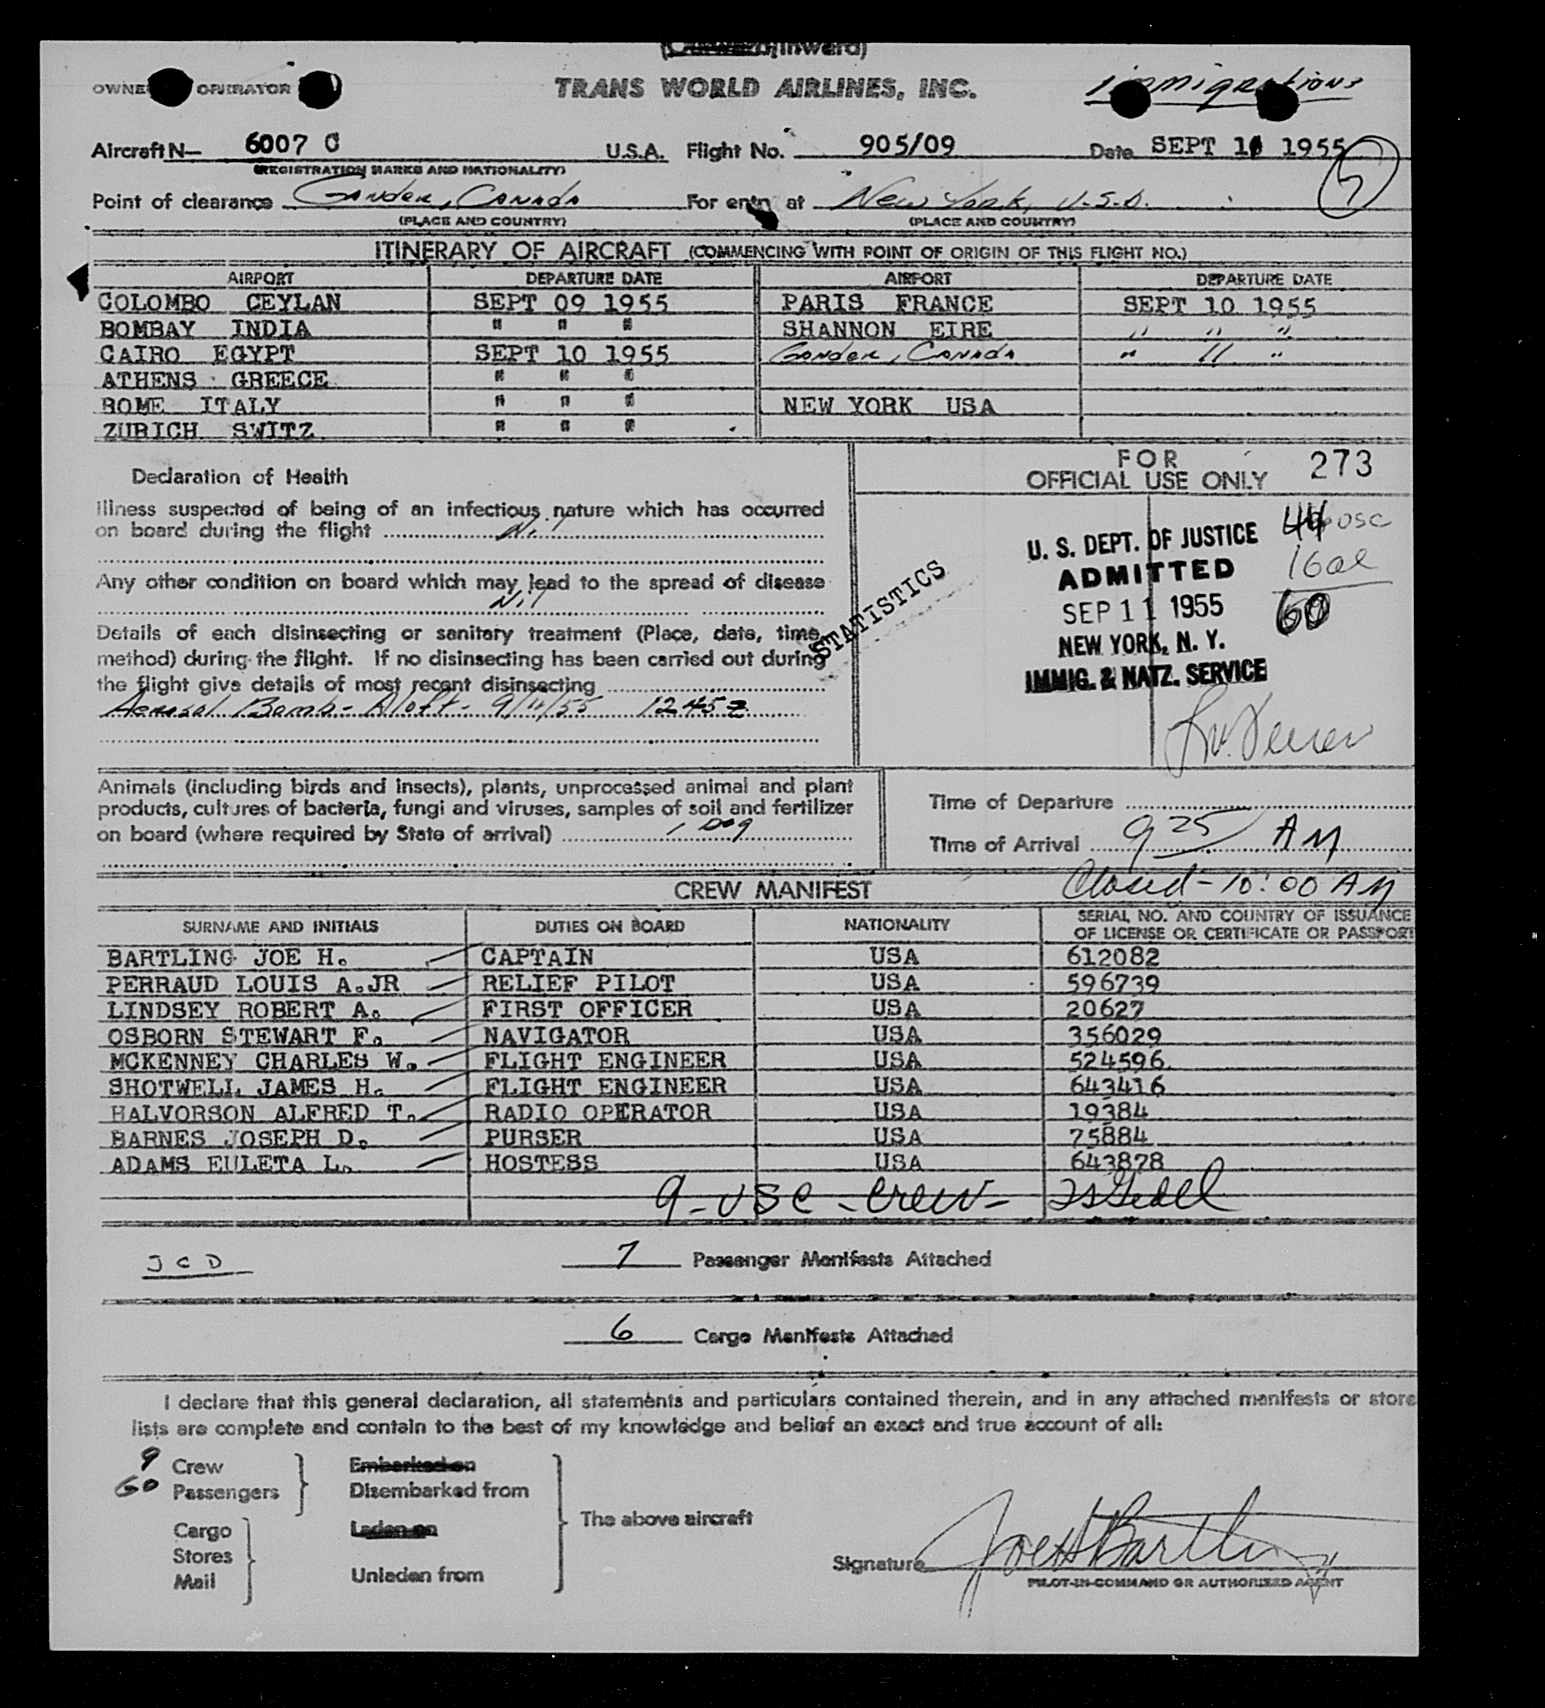 (Outward/Inward)
OWNER OPERATOR TRANS WORLD AIRLINES, INC. immigrations
Aircraft N— 6007 C U.S.A. Flight No. 905/09 Date SEPT 10 1955 5
(REGISTRATION MARKS AND NATIONALITY)
Point of clearance Gander, Canada For entry at New York, U.S.A.
(PLACE AND COUNTRY) (PLACE AND COUNTRY)
ITINERARY OF AIRCRAFT (COMMENCING WITH POINT OF ORIGIN OF THIS FLIGHT NO.)
AIRPORT DEPARTURE DATE AIRPORT DEPARTURE DATE
COLOMBO CEYLAN SEPT 09 1955 PARIS FRANCE SEPT 10 1955
BOMBAY INDIA " " " SHANNON EIRE " " "
CAIRO EGYPT SEPT 10 1955 Gander, Canada " " "
ATHENS GREECE " " "
ROME ITALY " " " NEW YORK USA
ZURICH SWITZ " " "
Declaration of Health
Illness suspected of being of an infectious nature which has occurred
on board during the flight Nil
Any other condition on board which may lead to the spread of disease
Nil
Details of each disinsecting or sanitary treatment (Place, date, time,
method) during the flight. If no disinsecting has been carried out during
the flight give details of most recent disinsecting
Aerosol Bomb - Aloft - 9/11/55 1245z
STATISTICS
FOR
OFFICIAL USE ONLY 273
U. S. DEPT. OF JUSTICE 44 usc
ADMITTED 16 al
SEP 11 1955 60
NEW YORK, N. Y.
IMMIG. & NATZ. SERVICE
Animals (including birds and insects), plants, unprocessed animal and plant
products, cultures of bacteria, fungi and viruses, samples of soil and fertilizer
on board (where required by State of arrival) 1 Dog
Time of Departure
Time of Arrival 9 25 AM
Closed - 10:00 AM
CREW MANIFEST
SURNAME AND INITIALS DUTIES ON BOARD NATIONALITY SERIAL NO. AND COUNTRY OF ISSUANCE
OF LICENSE OR CERTIFICATE OR PASSPORT
BARTLING JOE H. CAPTAIN USA 612082
PERRAUD LOUIS A.JR RELIEF PILOT USA 596739
LINDSEY ROBERT A. FIRST OFFICER USA 20627
OSBORN STEWART F. NAVIGATOR USA 356029
MCKENNEY CHARLES W. FLIGHT ENGINEER USA 524596
SHOTWELL JAMES H. FLIGHT ENGINEER USA 643416
HALVORSON ALFRED T. RADIO OPERATOR USA 19384
BARNES JOSEPH D. PURSER USA 75884
ADAMS EULETA L. HOSTESS USA 643878
9 - USC - crew -
JCD 7 Passenger Manifests Attached
6 Cargo Manifests Attached
I declare that this general declaration, all statements and particulars contained therein, and in any attached manifests or store
lists are complete and contain to the best of my knowledge and belief an exact and true account of all:
9 Crew Embarked on
60 Passengers Disembarked from
The above aircraft
Cargo Laden on
Stores
Mail Unladen from
Signature Joe H Bartling
PILOT-IN-COMMAND OR AUTHORIZED AGENT